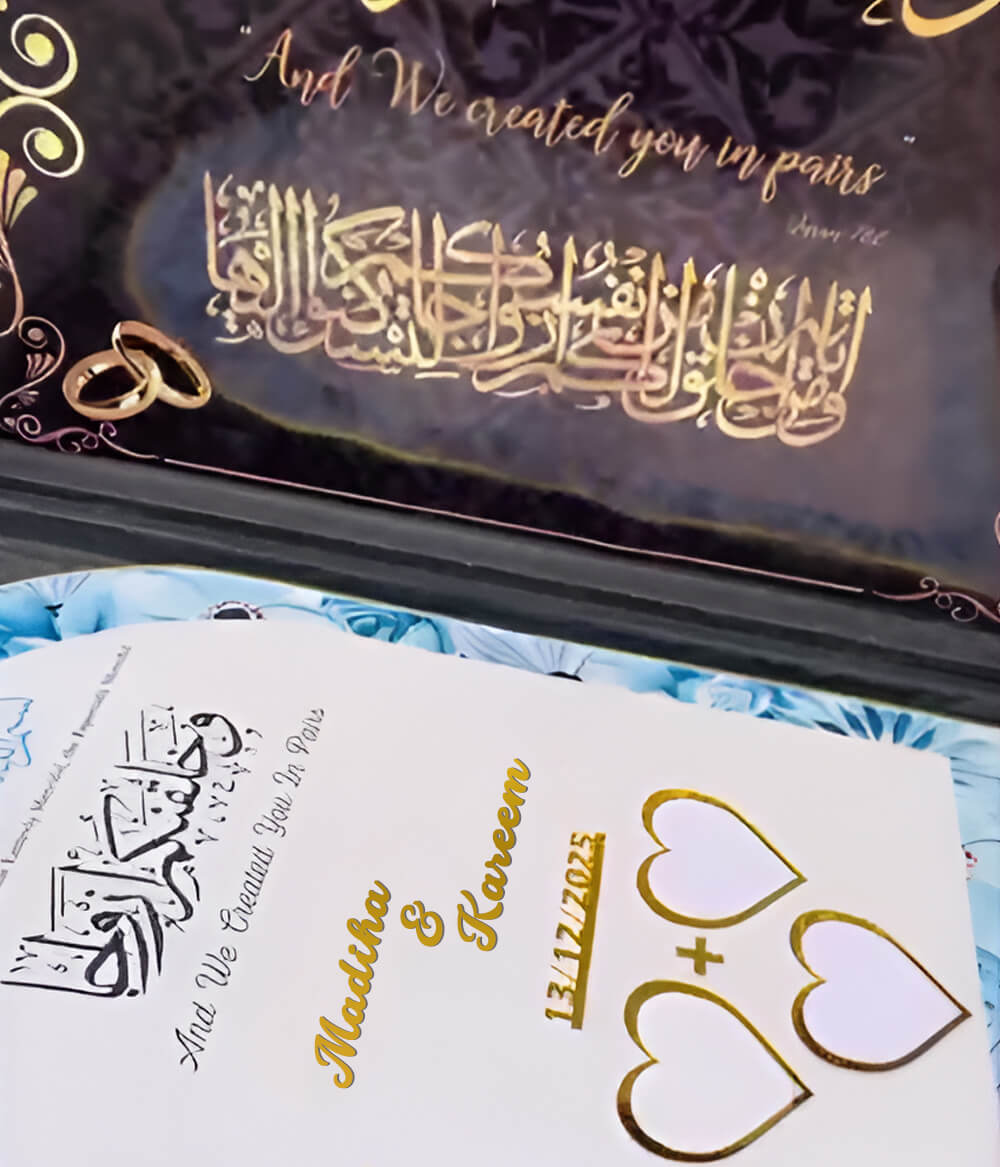 "And We created you in pairs"
ومن آياته أن خلق لكم من أنفسكم أزواجا لتسكنوا إليها
وخلقنكم أزواجا
And We Created You In Pairs
Madiha
&
Kareem
13/12/2025
+